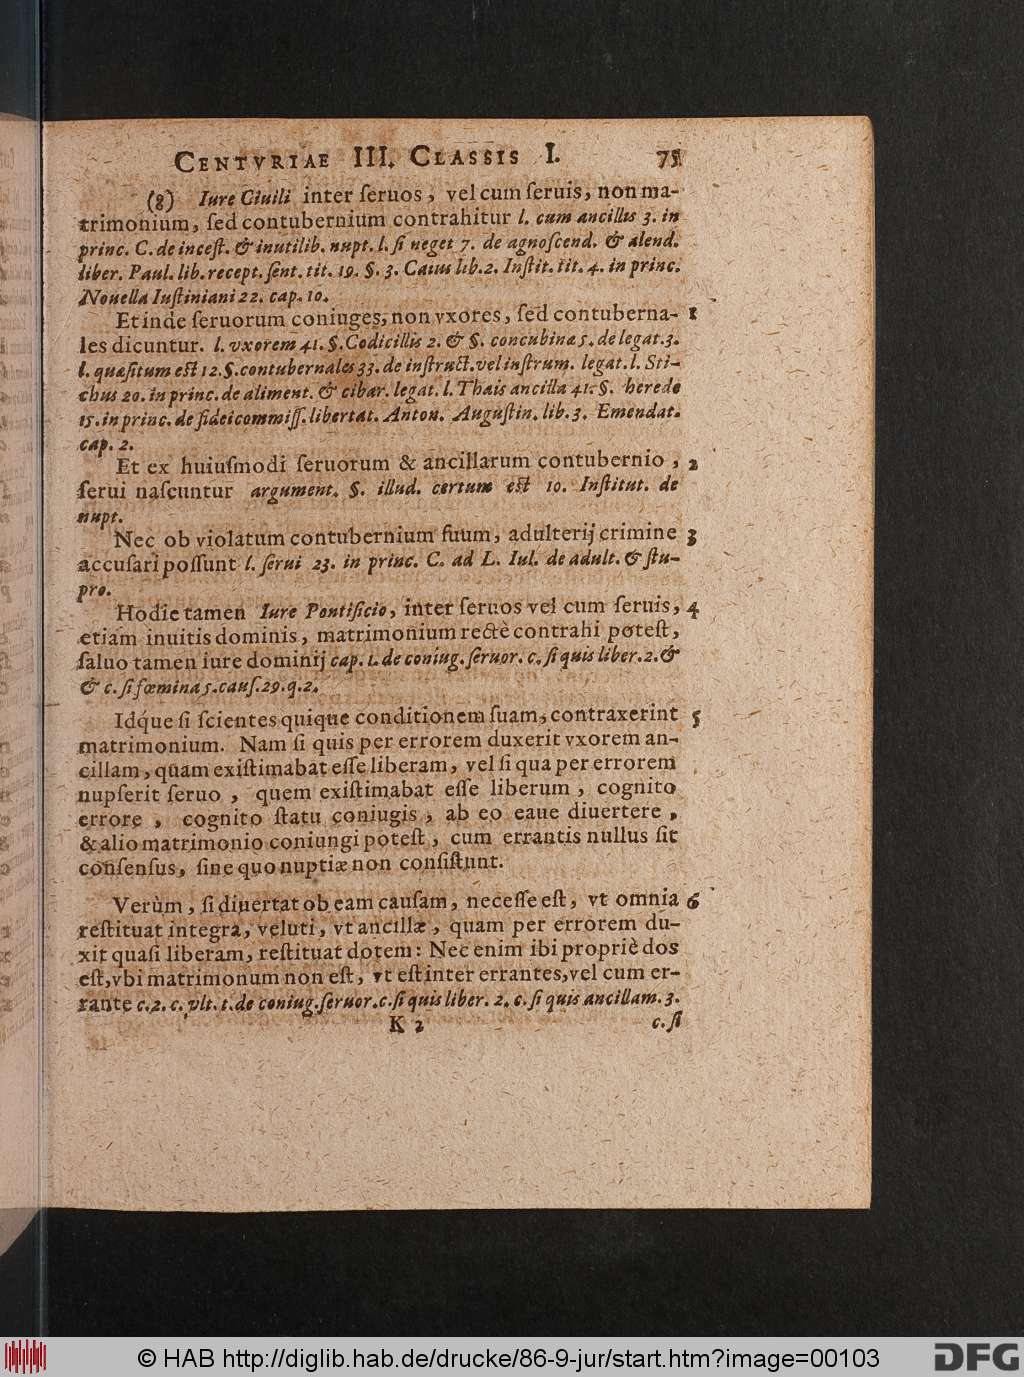 CENTVRIAE III. CLASSIS I. 75
(8) Iure Ciuili inter ſeruos, vel cum ſeruis, non ma-
trimonium, ſed contubernium contrahitur l. cum ancillis 3. in
princ. C. de inceſt. & inutilib. nupt. l. ſi neget 7. de agnoſcend. & alend.
liber. Paul. lib. recept. ſent. tit. 19. §. 3. Caius lib. 2. Inſtit. tit. 4. in princ.
Nouella Iuſtiniani 22. cap. 10.
Et inde ſeruorum coniuges, non vxores, ſed contuberna- 1
les dicuntur. l. vxorem 41. §. Codicillis 2. & §. concubina 5. de legat. 3.
l. quæſitum eſt 12. §. contubernales 33. de inſtruct. vel inſtrum. legat. l. Sti-
chus 20. in princ. de aliment. & cibar. legat. l. Thais ancilla 41. §. herede
15. in princ. de fideicommiſſ. libertat. Anton. Auguſtin. lib. 3. Emendat.
cap. 2.
Et ex huiuſmodi ſeruorum & ancillarum contubernio, 2
ſerui naſcuntur argument. §. illud. certum eſt 10. Inſtitut. de
nupt.
Nec ob violatum contubernium ſuum, adulterij crimine 3
accuſari poſſunt l. ſerui 23. in princ. C. ad L. Iul. de adult. & ſtu-
pro.
Hodie tamen Iure Pontificio, inter ſeruos vel cum ſeruis, 4
etiam inuitis dominis, matrimonium rectè contrahi poteſt,
ſaluo tamen iure dominij cap. 1. de coniug. ſeruor. c. ſi quis liber. 2. &
& c. ſi fœmina 5. cauſ. 29. q. 2.
Idq́ue ſi ſcientes quique conditionem ſuam, contraxerint 5
matrimonium. Nam ſi quis per errorem duxerit vxorem an-
cillam, quam exiſtimabat eſſe liberam, vel ſi qua per errorem
nupſerit ſeruo, quem exiſtimabat eſſe liberum, cognito
errore, cognito ſtatu coniugis, ab eo eaue diuertere,
& alio matrimonio coniungi poteſt, cum errantis nullus ſit
conſenſus, ſine quo nuptiæ non conſiſtunt.
Verùm, ſi diuertat ob eam cauſam, neceſſe eſt, vt omnia 6
reſtituat integra, veluti, vt ancillæ, quam per errorem du-
xit quaſi liberam, reſtituat dotem: Nec enim ibi propriè dos
eſt, vbi matrimonum non eſt, vt eſt inter errantes, vel cum er-
rante c. 2. c. vlt. t. de coniug. ſeruor. c. ſi quis liber. 2. c. ſi quis ancillam. 3.
K 2 c. ſi
© HAB http://diglib.hab.de/drucke/86-9-jur/start.htm?image=00103
DFG